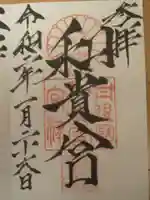 奉拝
和貴宮
令和二年一月二十六日